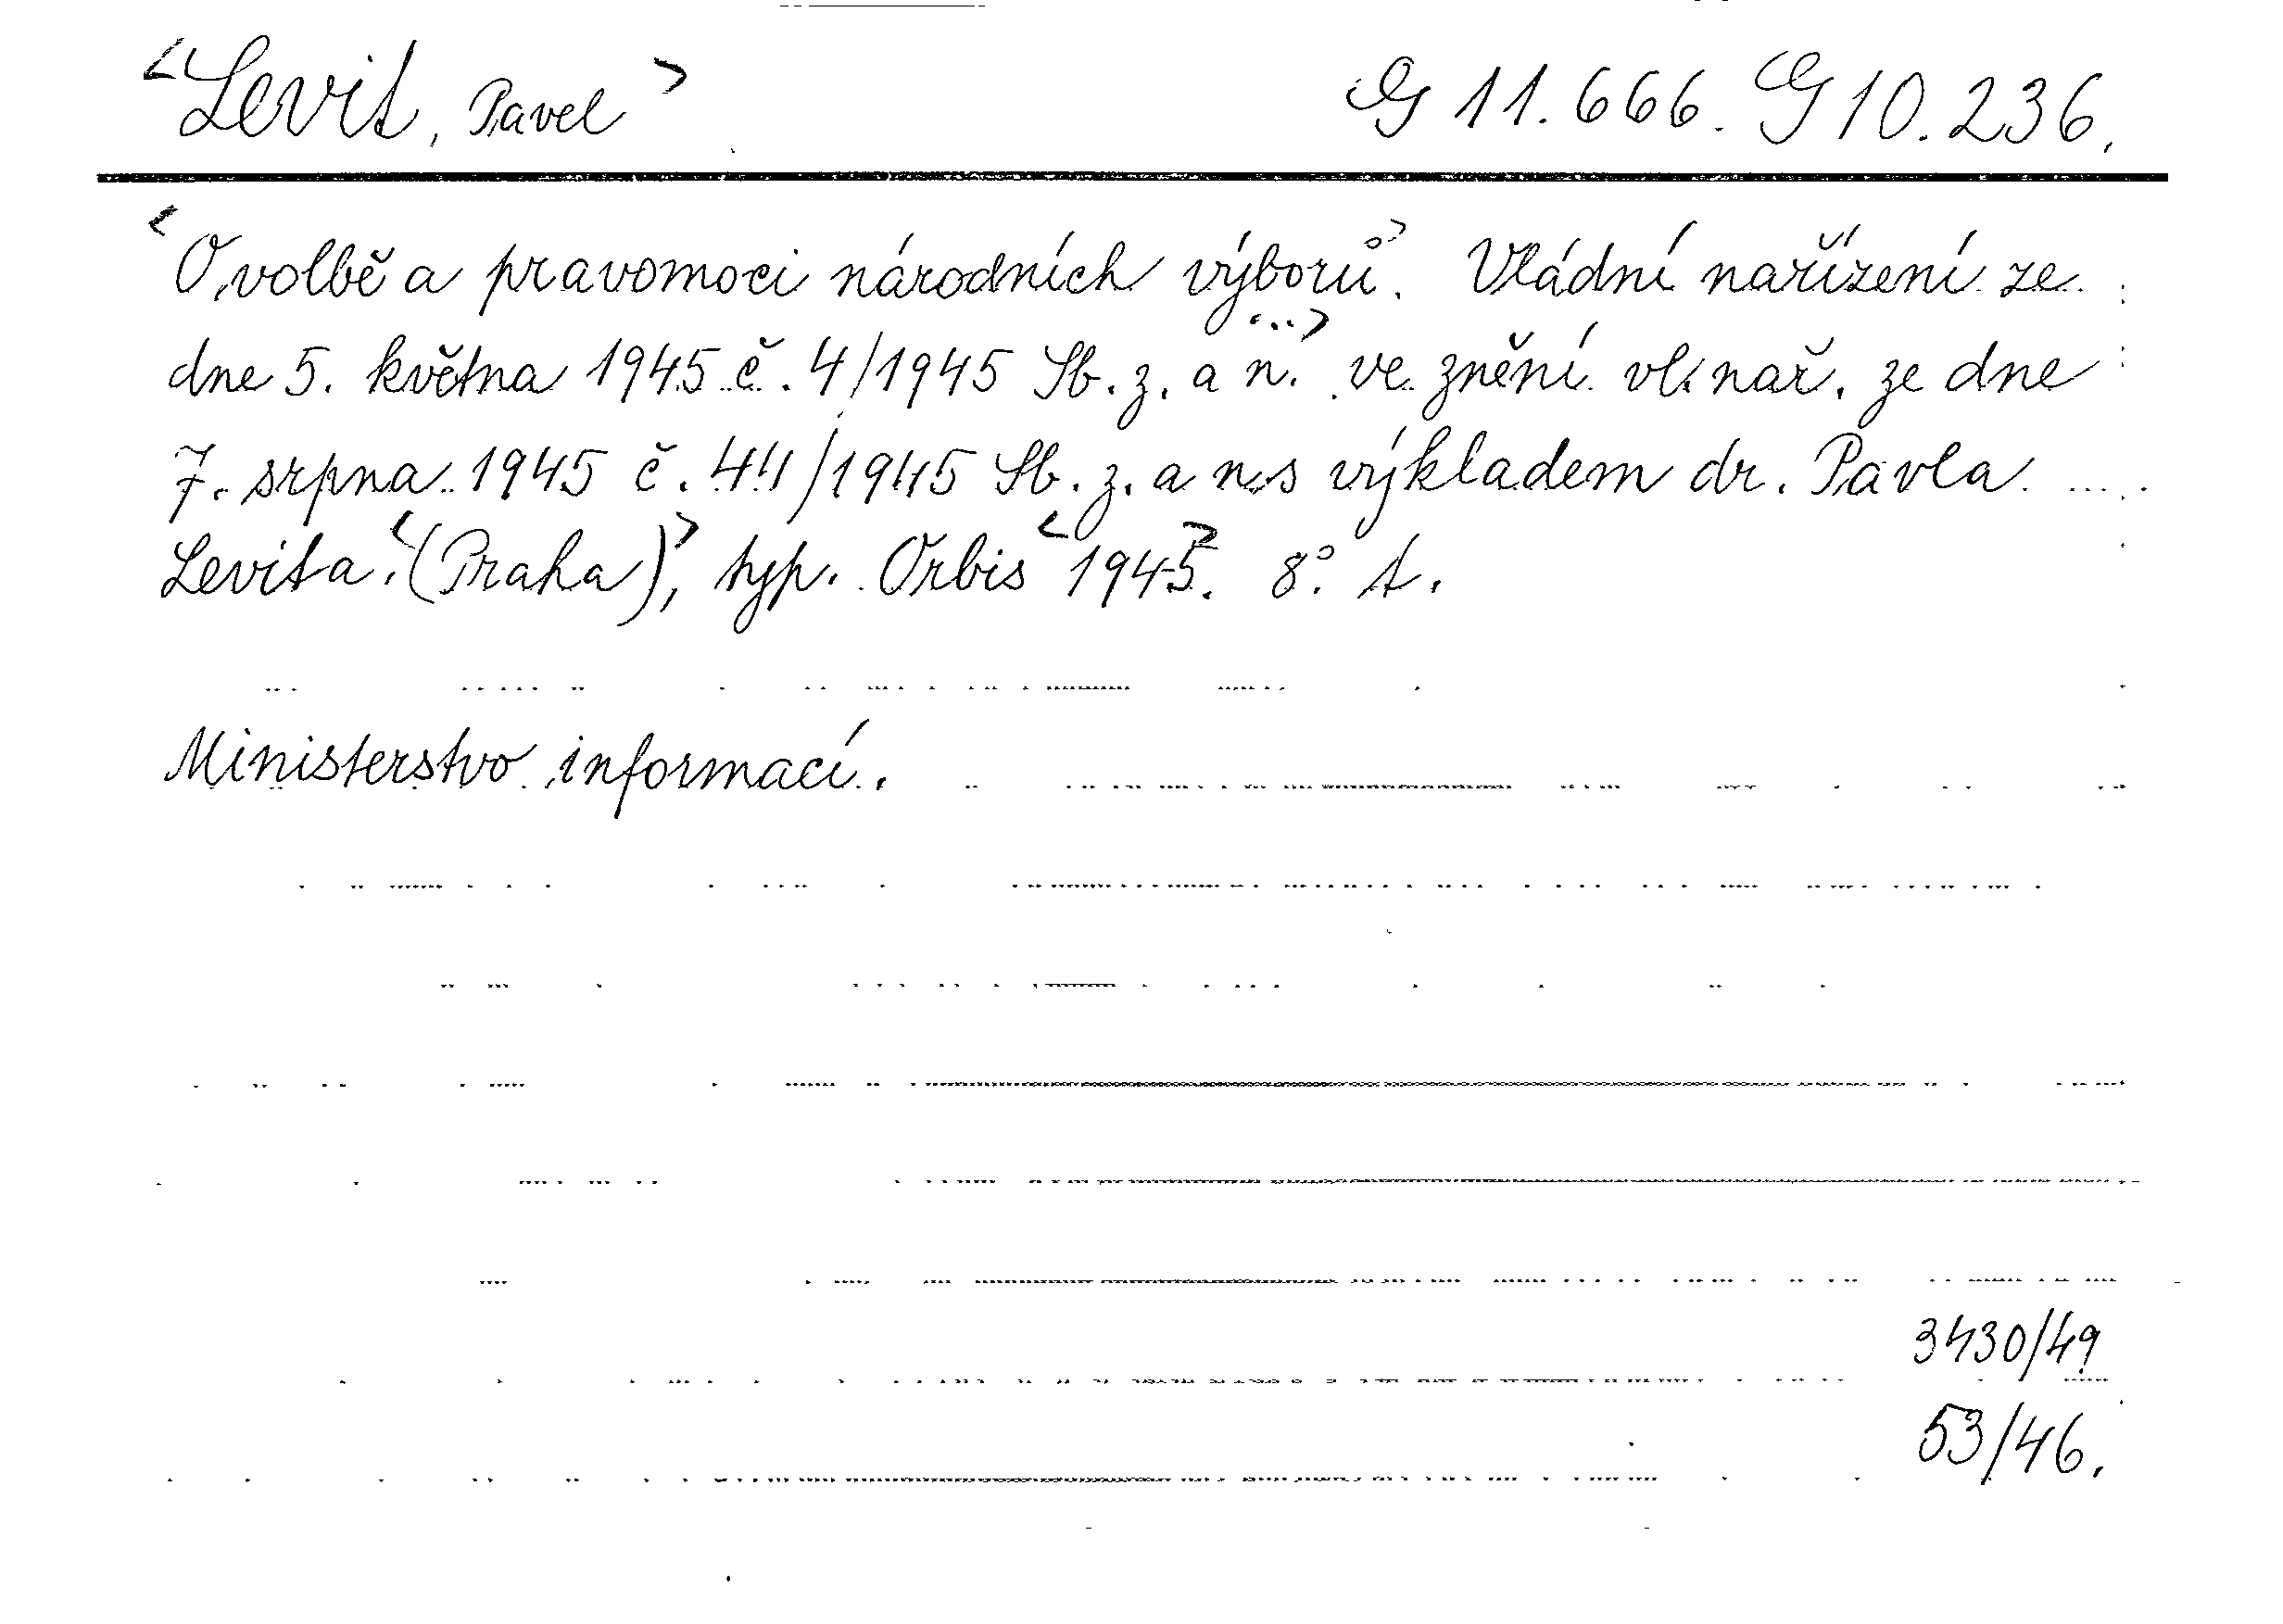 <Levit, Pavel> G 11.666. G 10.236.
<O volbě a pravomoci národních výborů>. Vládní nařízení ze
dne 5. května 1945 č. 4/1945 Sb. z. a n. ...> ve znění vl. nař. ze dne
7. srpna 1945 č. 44/1945 Sb. z. a n. s výkladem dr. Pavla
Levita. <(Praha)>, typ. Orbis <1945>. 8°. t.
Ministerstvo informací.
3430/49
53/46.